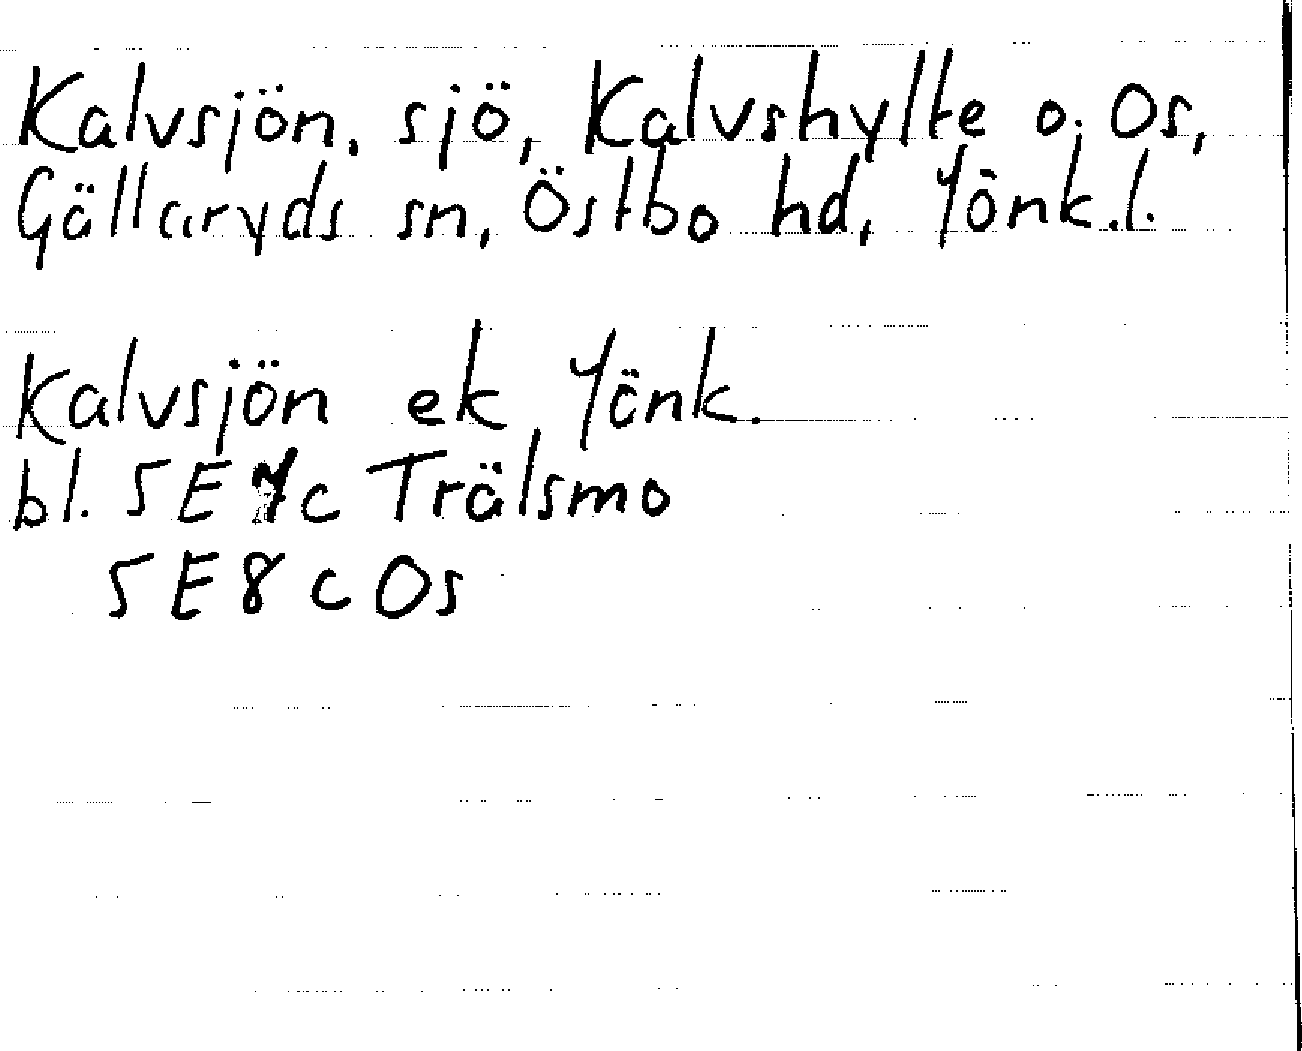 Kalvsjön, sjö, Kalvshylte o. Os,
Gällaryds sn, Östbo hd, Jönk.l.
Kalvsjön ek Jönk.
bl. 5E7c Trälsmo
5E8c Os